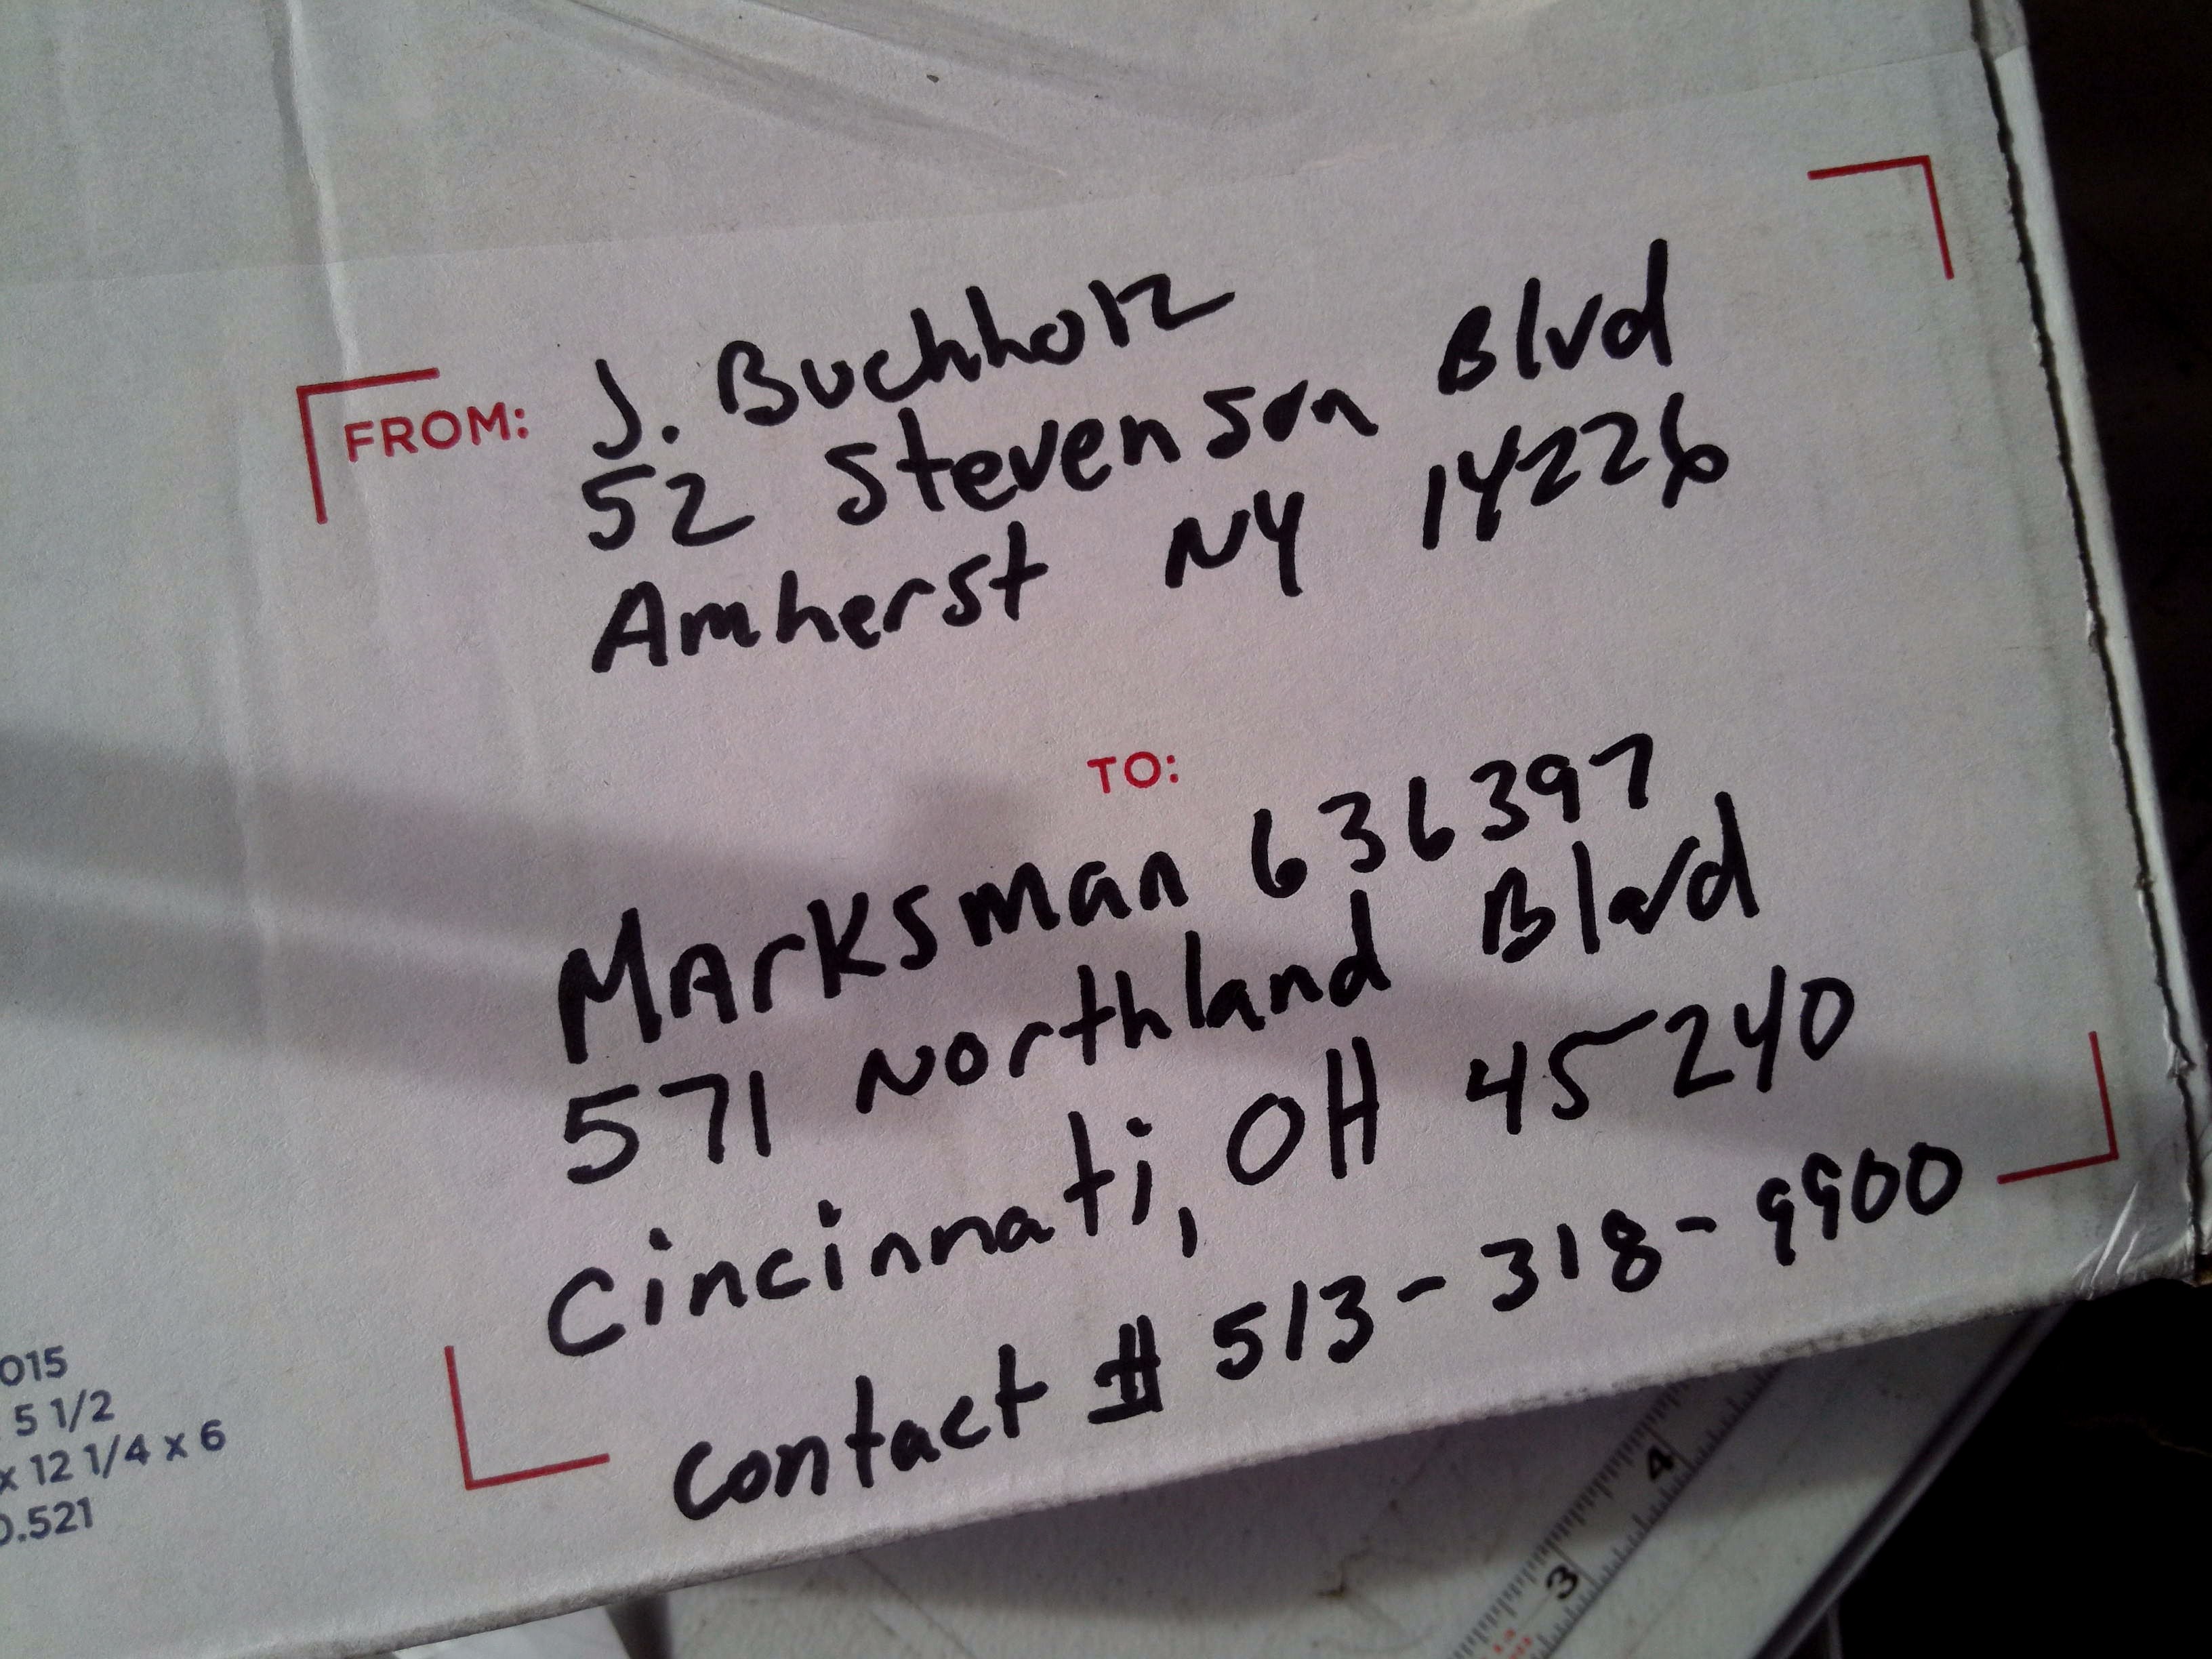 FROM:
J. Buchholz
52 Stevenson Blvd
Amherst NY 14226
TO:
Marksman 636397
571 Northland Blvd
Cincinnati, OH 45240
contact # 513-318-9900
015
5 1/2
x 12 1/4 x 6
0.521
4
3